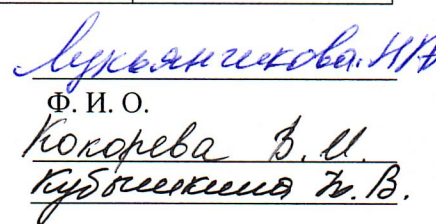 Лукьянчикова Н.В.
Ф. И. О.
Кокорева В. И.
Кубышкина Ю. В.